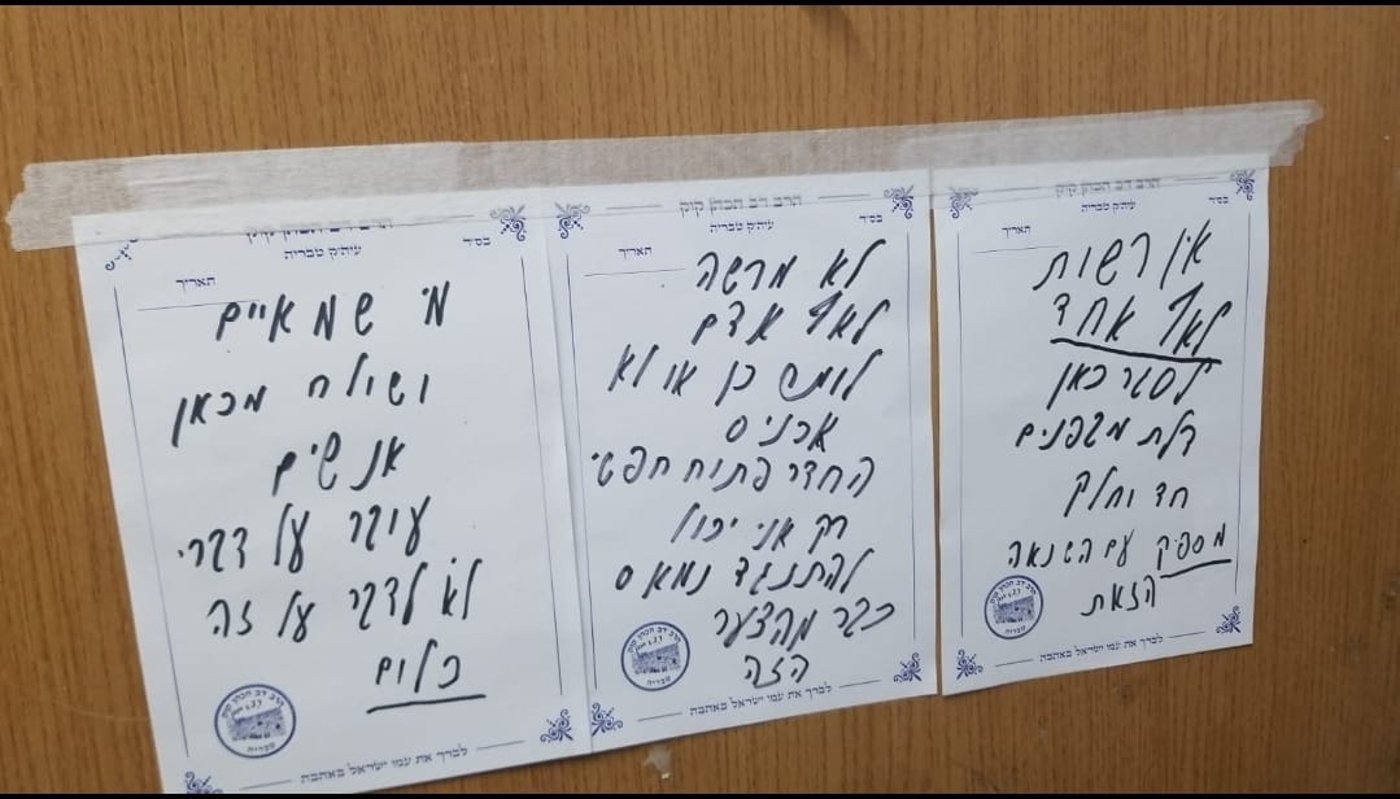 הרב דב הכהן קוק
עיה״ק טבריה
בס״ד
תאריך
אין רשות
לאף אחד
לסגר כאן
דלת מבפנים
חד וחלק
מספיק עם השנאה
הזאת
הרב דב הכהן קוק
טבריה
לברך את עמו ישראל באהבה
הרב דב הכהן קוק
עיה״ק טבריה
בס״ד
תאריך
לא מרשה
לאף אדם
כן או לא
להכניס
החדר פתוח חפשי
רק אני יכול
להתנגד נמאס
כבר מהצער
הזה
הרב דב הכהן קוק
טבריה
לברך את עמו ישראל באהבה
הרב דב הכהן קוק
עיה״ק טבריה
בס״ד
תאריך
מי שמאיים
ושולח מכאן
אנשים
עובר על דברי
לא לדבר על זה
כלום
הרב דב הכהן קוק
טבריה
לברך את עמו ישראל באהבה